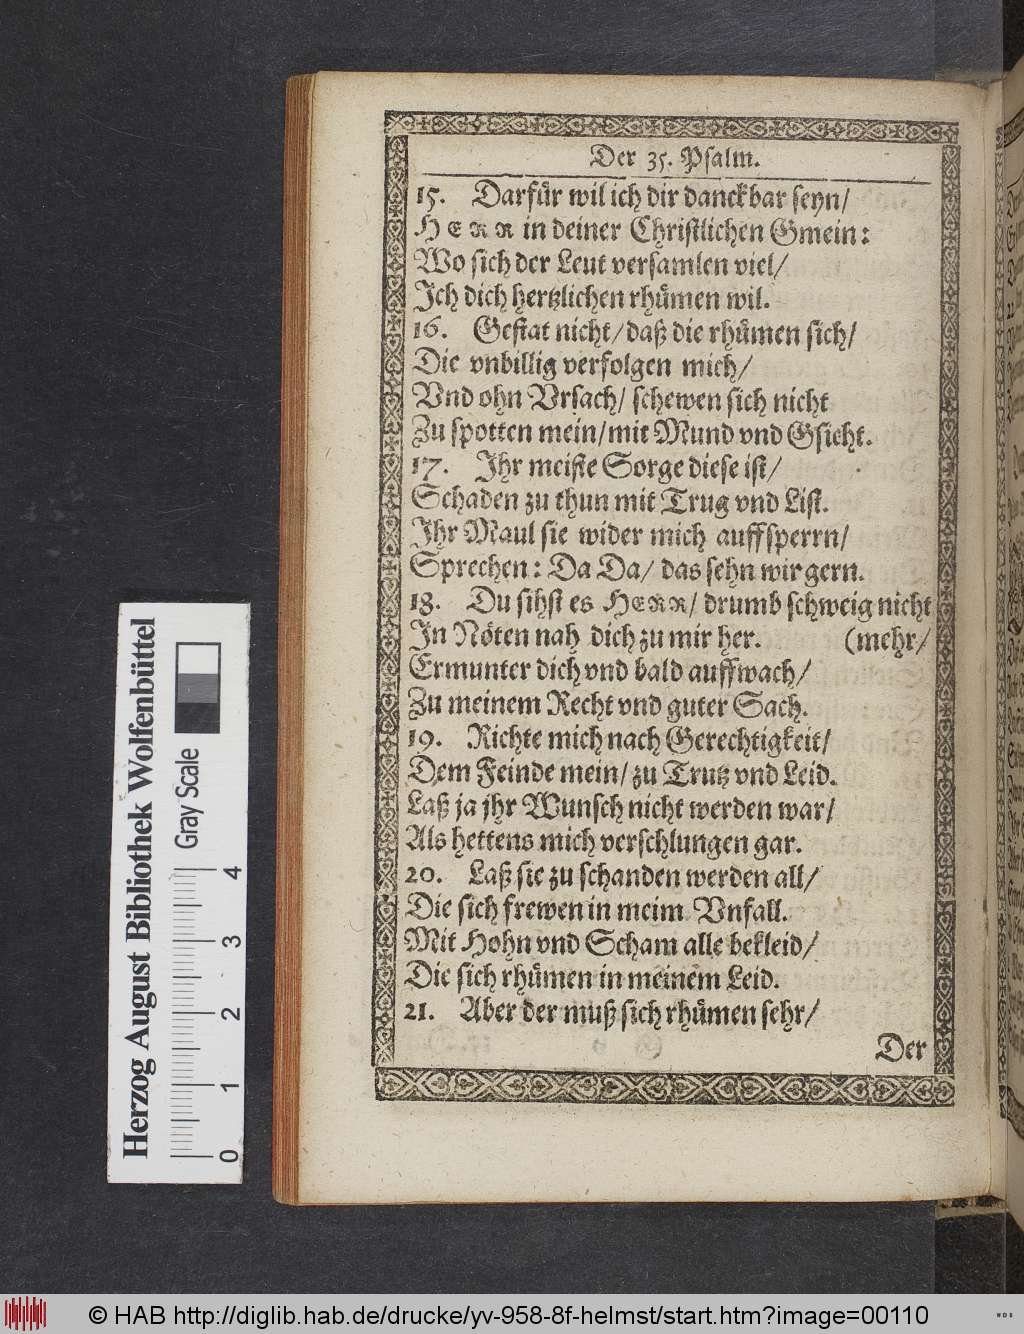 Der 35. Psalm.
15. Darfür wil ich dir danckbar seyn/
HERR in deiner Christlichen Gmein:
Wo sich der Leut versamlen viel/
Ich dich hertzlichen rhümen wil.
16. Gestat nicht/ daß die rhümen sich/
Die vnbillig verfolgen mich/
Vnd ohn Vrsach/ schewen sich nicht
Zu spotten mein/ mit Mund vnd Gsicht.
17. Ihr meiste Sorge diese ist/
Schaden zu thun mit Trug vnd List.
Ihr Maul sie wider mich auffsperrn/
Sprechen: Da Da/ das sehn wir gern.
18. Du sihst es HERR/ drumb schweig nicht
In Nöten nah dich zu mir her. (mehr/
Ermunter dich vnd bald auffwach/
Zu meinem Recht vnd guter Sach.
19. Richte mich nach Gerechtigkeit/
Dem Feinde mein/ zu Trutz vnd Leid.
Laß ja jhr Wunsch nicht werden war/
Als hettens mich verschlungen gar.
20. Laß sie zu schanden werden all/
Die sich frewen in meim Vnfall.
Mit Hohn vnd Scham alle bekleid/
Die sich rhümen in meinem Leid.
21. Aber der muß sich rhümen sehr/
Der
Herzog August Bibliothek Wolfenbüttel
Gray Scale
0 1 2 3 4
© HAB http://diglib.hab.de/drucke/yv-958-8f-helmst/start.htm?image=00110